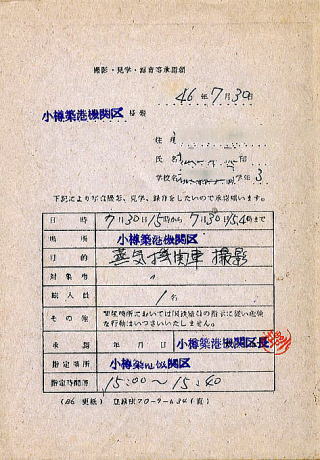 撮影・見学・録音等承認願
46年7月30日
小樽築港機関区長殿
住所
氏名
学校名 学年 3
下記により写真撮影、見学、録音をしたいので承認願います。
日時 7月30日15時から7月30日15.4時まで
場所 小樽築港機関区
目的 蒸気機関車撮影
対象者 〃
総人員 1名
その他 関係場所においては国鉄係員の指示に従い危険な行動はいっさいいたしません。
承認 年月日 小樽築港機関区長
指定場所 小樽築港機関区
指定時間等 15:00〜15:40
(B6 更紙)